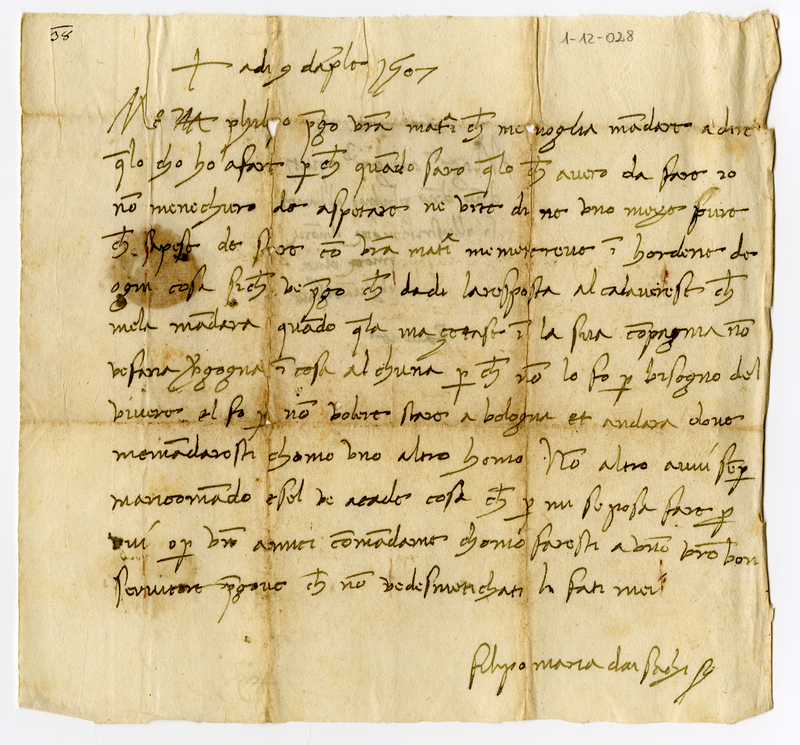 38
1-12-028
+ adi 9 daple 1507
Mo philipo pgo vra matia ch me voglia mandare a dire
qlo cho ho afare p ch quado saro qlo ch avero da fare io
no menechurero de aspetare ne vinte di ne uno meze pure
ch sapese de stere co vra matia memetereve i hordene de
ogni cosa sich ve pgo ch dadi laresposta al calaverese ch
mela madara quado qla mazorase i la sua copagnia no
vesaria vgogna i cosa alchuna p ch no lo fo p bisogno del
vivere el fo p no volere stare a bologna et andara dove
memadaresti chomo uno altro homo No altro a vui sep
maricomado e sel ve acade cosa ch p mi se posa fare p
vui o p vri amici comadame chomo faresti a uno vro bon
servitore pgove ch no vedesmetichati li fati mei
filipo maria dai sachi